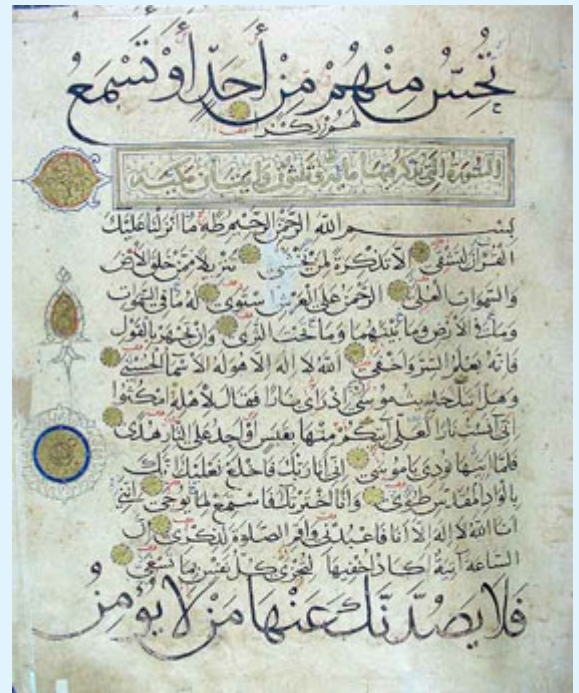 تُحِسُّ مِنْهُمْ مِنْ أَحَدٍ أَوْ تَسْمَعُ
لهم ركزا
السورة التي يذكر فيها مايه وثلثون وايتان مكية
بسم الله الرحمن الرحيم طه ما انزلنا عليك
القرآن لتشقى الا تذكرة لمن يخشى تنزيلا ممن خلق الارض
والسموات العلى الرحمن على العرش استوى له ما في السموات
وما في الارض وما بينهما وما تحت الثرى وان تجهر بالقول
فانه يعلم السر واخفى الله لا اله الا هو له الاسماء الحسنى
وهل اتيك حديث موسى اذ راى نارا فقال لاهله امكثوا
اني انست نارا لعلي اتيكم منها بقبس او اجد على النار هدى
فلما اتيها نودي ياموسى اني انا ربك فاخلع نعليك انك
بالواد المقدس طوى وانا اخترتك فاستمع لما يوحى انني
انا الله لا اله الا انا فاعبدني واقم الصلوة لذكري ان
الساعة اتية اكاد اخفيها لتجزى كل نفس بما تسعى
فَلَا يَصُدَّنَّكَ عَنْهَا مَنْ لَا يُؤْمِنُ